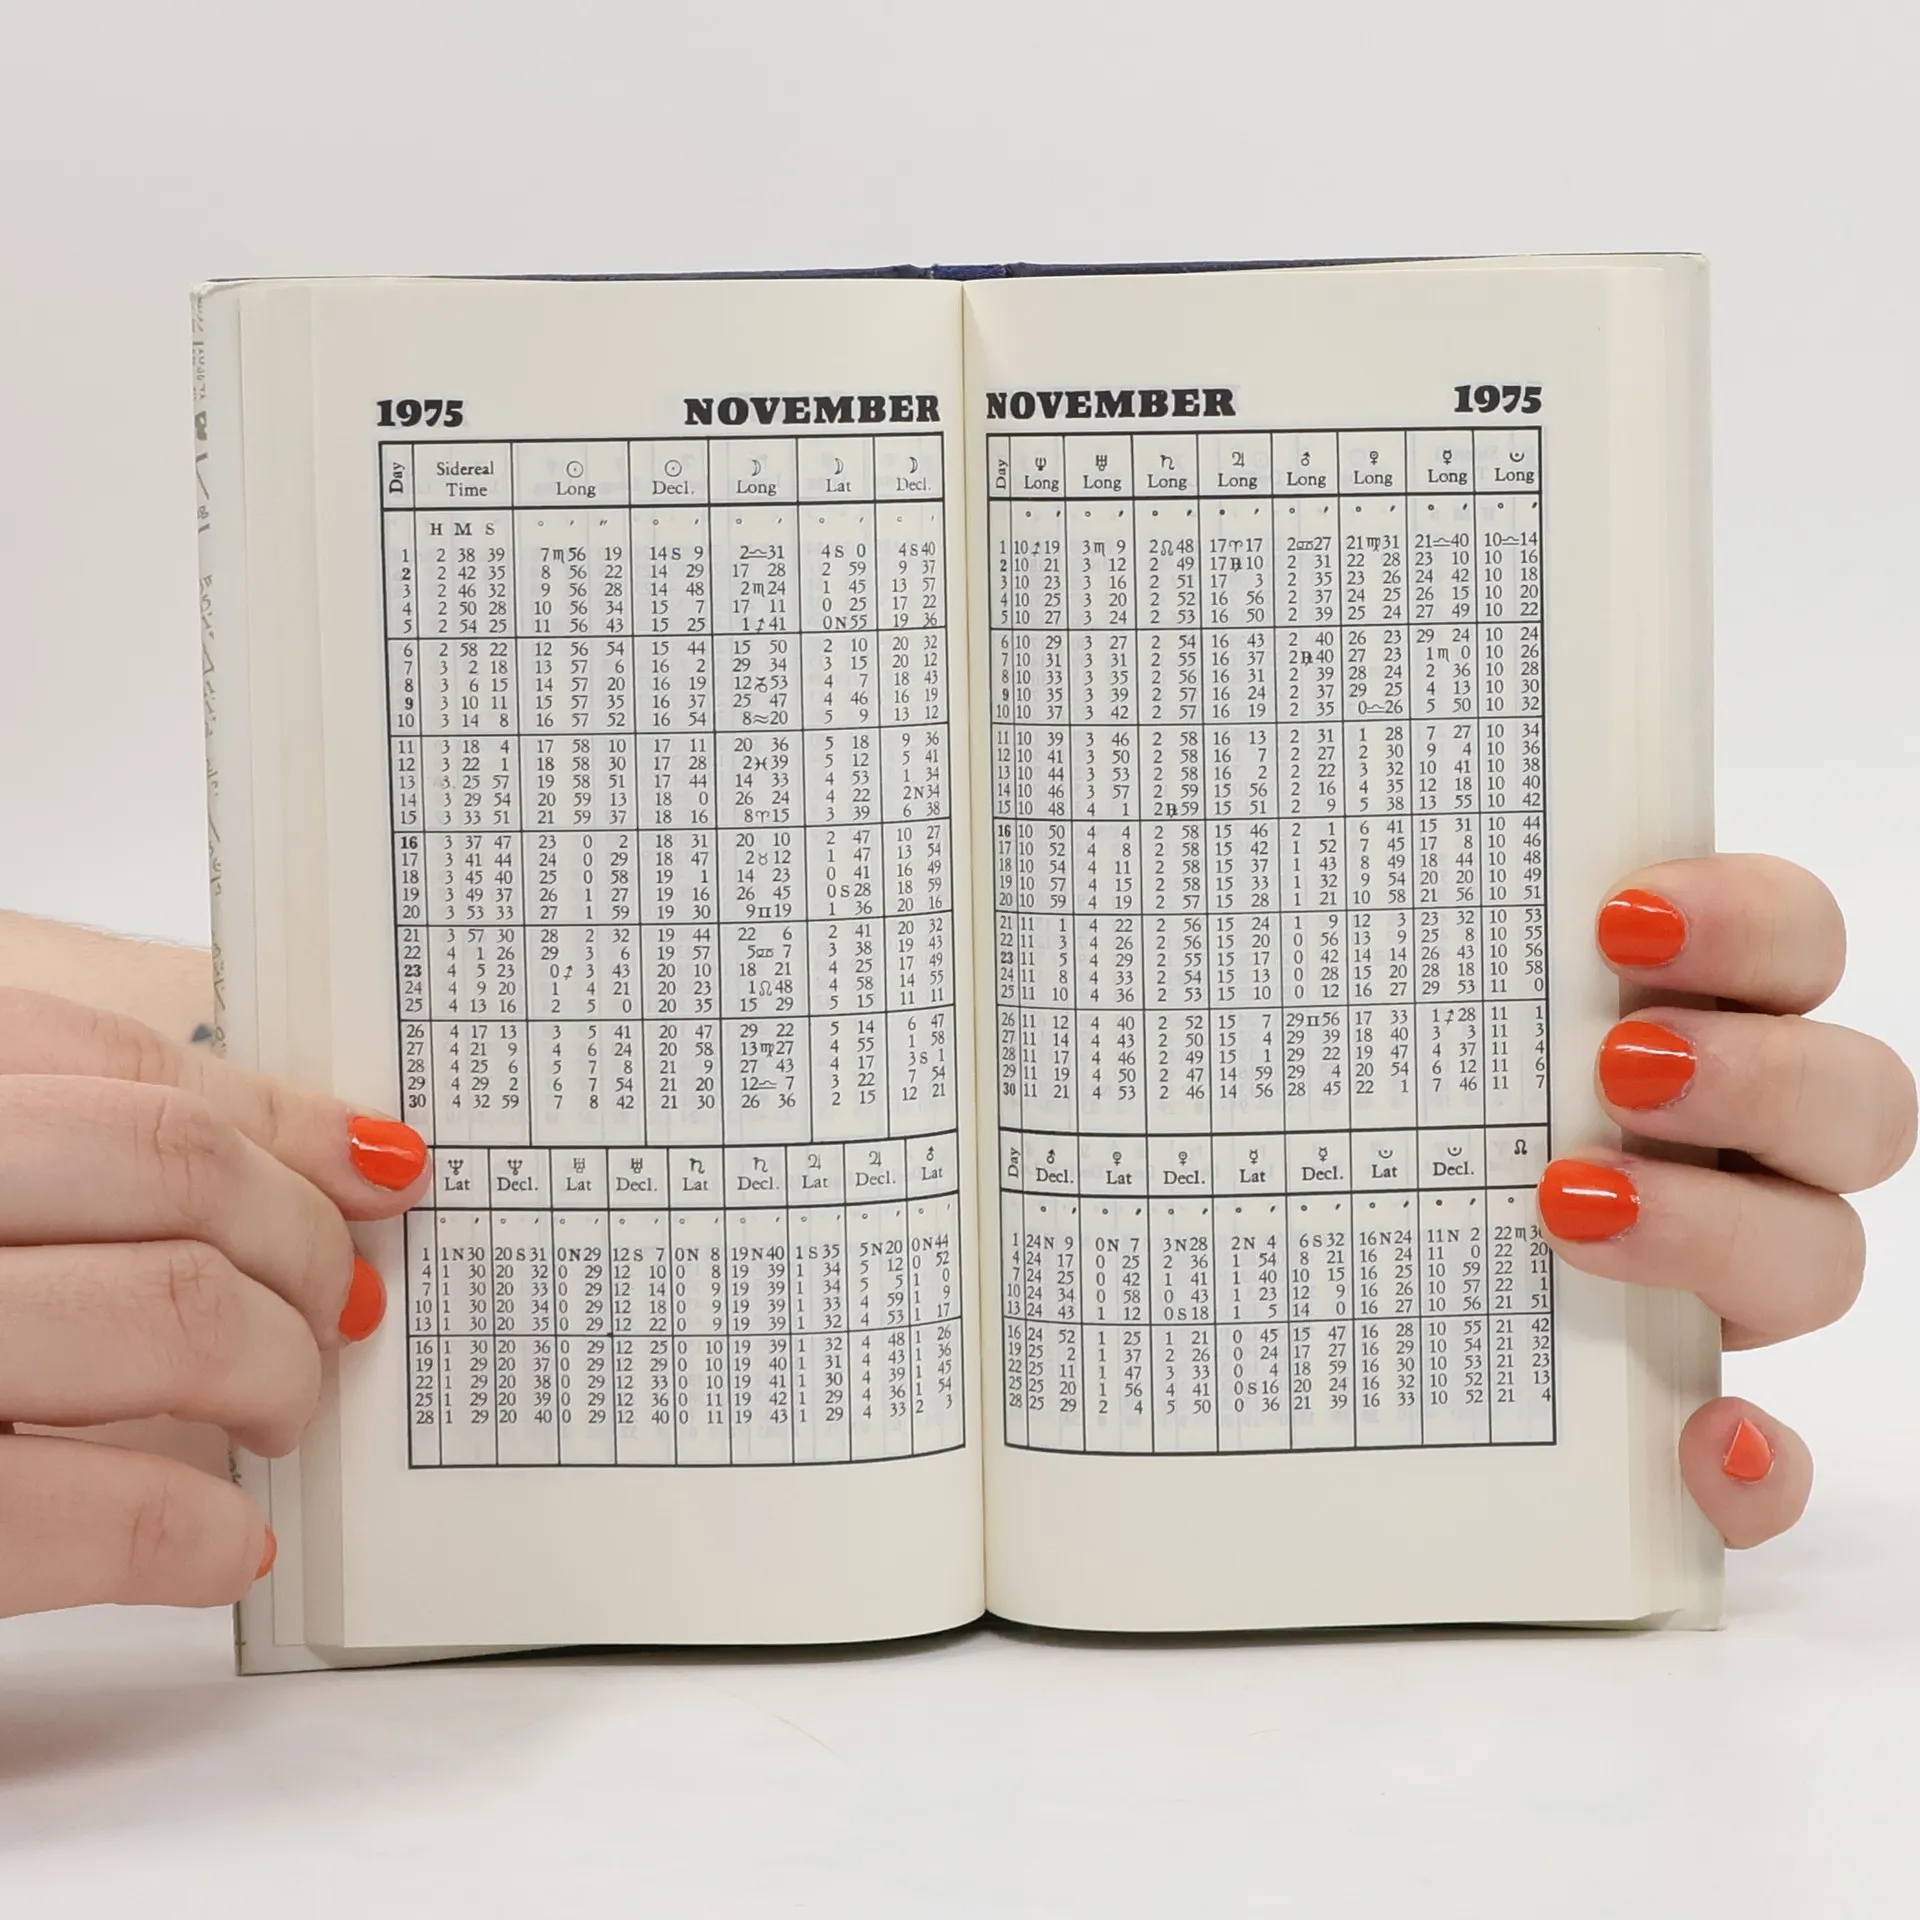 1975 NOVEMBER
Day Sidereal Time ☉ Long ☉ Decl. ☽ Long ☽ Lat ☽ Decl.
H M S ° ′ ″ ° ′ ° ′ ° ′ ° ′
1 2 38 39 7♏56 19 14 S 9 2♎31 4 S 0 4 S 40
2 2 42 35 8 56 22 14 29 17 28 2 59 9 37
3 2 46 32 9 56 28 14 48 2♏24 1 45 13 57
4 2 50 28 10 56 34 15 7 17 11 0 25 17 22
5 2 54 25 11 56 43 15 25 1♐41 0 N 55 19 36
6 2 58 22 12 56 54 15 44 15 50 2 10 20 32
7 3 2 18 13 57 6 16 2 29 34 3 15 20 12
8 3 6 15 14 57 20 16 19 12♑53 4 7 18 43
9 3 10 11 15 57 35 16 37 25 47 4 46 16 19
10 3 14 8 16 57 52 16 54 8♒20 5 9 13 12
11 3 18 4 17 58 10 17 11 20 36 5 18 9 36
12 3 22 1 18 58 30 17 28 2♓39 5 12 5 41
13 3 25 57 19 58 51 17 44 14 33 4 53 1 34
14 3 29 54 20 59 13 18 0 26 24 4 22 2 N 34
15 3 33 51 21 59 37 18 16 8♈15 3 39 6 38
16 3 37 47 23 0 2 18 31 20 10 2 47 10 27
17 3 41 44 24 0 29 18 47 2♉12 1 47 13 54
18 3 45 40 25 0 58 19 1 14 23 0 41 16 49
19 3 49 37 26 1 27 19 16 26 45 0 S 28 18 59
20 3 53 33 27 1 59 19 30 9♊19 1 36 20 16
21 3 57 30 28 2 32 19 44 22 6 2 41 20 32
22 4 1 26 29 3 6 19 57 5♋7 3 38 19 43
23 4 5 23 0♐3 43 20 10 18 21 4 25 17 49
24 4 9 20 1 4 21 20 23 1♌48 4 58 14 55
25 4 13 16 2 5 0 20 35 15 29 5 15 11 11
26 4 17 13 3 5 41 20 47 29 22 5 14 6 47
27 4 21 9 4 6 24 20 58 13♍27 4 55 1 58
28 4 25 6 5 7 8 21 9 27 43 4 17 3 S 1
29 4 29 2 6 7 54 21 20 12♎7 3 22 7 54
30 4 32 59 7 8 42 21 30 26 36 2 15 12 21
♆ Lat ♆ Decl. ♅ Lat ♅ Decl. ♄ Lat ♄ Decl. ♃ Lat ♃ Decl. ♂ Lat
° ′ ° ′ ° ′ ° ′ ° ′ ° ′ ° ′ ° ′ ° ′
1 1 N 30 20 S 31 0 N 29 12 S 7 0 N 8 19 N 40 1 S 35 5 N 20 0 N 44
4 1 30 20 32 0 29 12 10 0 8 19 39 1 34 5 12 0 52
7 1 30 20 33 0 29 12 14 0 9 19 39 1 34 5 5 1 0
10 1 30 20 34 0 29 12 18 0 9 19 39 1 33 4 59 1 9
13 1 30 20 35 0 29 12 22 0 9 19 39 1 32 4 53 1 17
16 1 30 20 36 0 29 12 25 0 10 19 39 1 32 4 48 1 26
19 1 29 20 37 0 29 12 29 0 10 19 40 1 31 4 43 1 36
22 1 29 20 38 0 29 12 33 0 10 19 41 1 30 4 39 1 45
25 1 29 20 39 0 29 12 36 0 11 19 42 1 29 4 36 1 54
28 1 29 20 40 0 29 12 40 0 11 19 43 1 29 4 33 2 3
NOVEMBER 1975
Day ♆ Long ♅ Long ♄ Long ♃ Long ♂ Long ♀ Long ☿ Long Long
° ′ ° ′ ° ′ ° ′ ° ′ ° ′ ° ′ ° ′
1 10♐19 3♏9 2♌48 17♈17 2♋27 21♍31 21♎40 10♎14
2 10 21 3 12 2 49 17℞10 2 31 22 28 23 10 10 16
3 10 23 3 16 2 51 17 3 2 35 23 26 24 42 10 18
4 10 25 3 20 2 52 16 56 2 37 24 25 26 15 10 20
5 10 27 3 24 2 53 16 50 2 39 25 24 27 49 10 22
6 10 29 3 27 2 54 16 43 2 40 26 23 29 24 10 24
7 10 31 3 31 2 55 16 37 2℞40 27 23 1♏0 10 26
8 10 33 3 35 2 56 16 31 2 39 28 24 2 36 10 28
9 10 35 3 39 2 57 16 24 2 37 29 25 4 13 10 30
10 10 37 3 42 2 57 16 19 2 35 0♎26 5 50 10 32
11 10 39 3 46 2 58 16 13 2 31 1 28 7 27 10 34
12 10 41 3 50 2 58 16 7 2 27 2 30 9 4 10 36
13 10 44 3 53 2 58 16 2 2 22 3 32 10 41 10 38
14 10 46 3 57 2 59 15 56 2 16 4 35 12 18 10 40
15 10 48 4 1 2℞59 15 51 2 9 5 38 13 55 10 42
16 10 50 4 4 2 58 15 46 2 1 6 41 15 31 10 44
17 10 52 4 8 2 58 15 42 1 52 7 45 17 8 10 46
18 10 54 4 11 2 58 15 37 1 43 8 49 18 44 10 48
19 10 57 4 15 2 58 15 33 1 32 9 54 20 20 10 49
20 10 59 4 19 2 57 15 28 1 21 10 58 21 56 10 51
21 11 1 4 22 2 56 15 24 1 9 12 3 23 32 10 53
22 11 3 4 26 2 56 15 20 0 56 13 9 25 8 10 55
23 11 5 4 29 2 55 15 17 0 42 14 14 26 43 10 56
24 11 8 4 33 2 54 15 13 0 28 15 20 28 18 10 58
25 11 10 4 36 2 53 15 10 0 12 16 27 29 53 11 0
26 11 12 4 40 2 52 15 7 29♊56 17 33 1♐28 11 1
27 11 14 4 43 2 50 15 4 29 39 18 40 3 3 11 3
28 11 17 4 46 2 49 15 1 29 22 19 47 4 37 11 4
29 11 19 4 50 2 47 14 59 29 4 20 54 6 12 11 6
30 11 21 4 53 2 46 14 56 28 45 22 1 7 46 11 7
Day ♂ Decl. ♀ Lat ♀ Decl. ☿ Lat ☿ Decl. Lat Decl. ☊
° ′ ° ′ ° ′ ° ′ ° ′ ° ′ ° ′ °
1 24 N 9 0 N 7 3 N 28 2 N 4 6 S 32 16 N 24 11 N 2 22♏
4 24 17 0 25 2 36 1 54 8 21 16 24 11 0 22 20
7 24 25 0 42 1 41 1 40 10 15 16 25 10 59 22 11
10 24 34 0 58 0 43 1 23 12 9 16 26 10 57 22 1
13 24 43 1 12 0 S 18 1 5 14 0 16 27 10 56 21 51
16 24 52 1 25 1 21 0 45 15 47 16 28 10 55 21 42
19 25 2 1 37 2 26 0 24 17 27 16 29 10 54 21 32
22 25 11 1 47 3 33 0 4 18 59 16 30 10 53 21 23
25 25 20 1 56 4 41 0 S 16 20 24 16 32 10 52 21 13
28 25 29 2 4 5 50 0 36 21 39 16 33 10 52 21 4